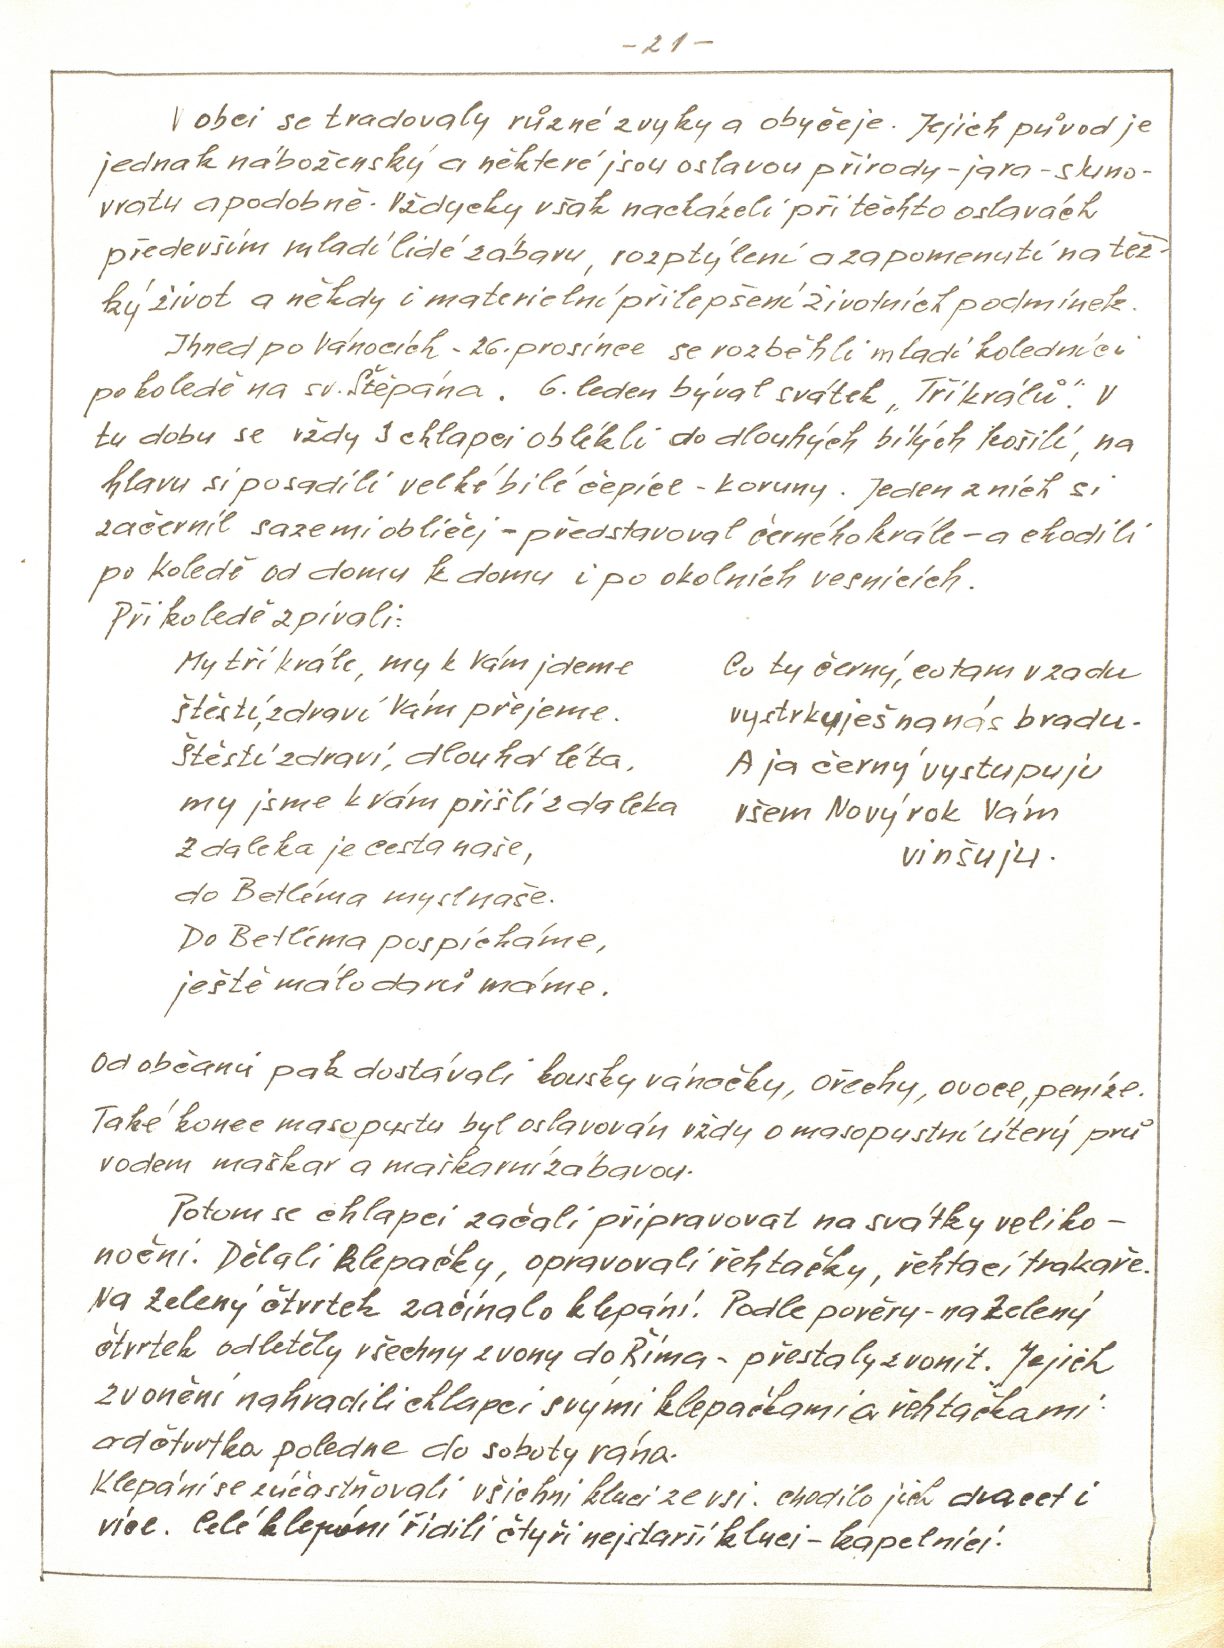 - 21 -
V obci se tradovaly různé zvyky a obyčeje. Jejich původ je
jednak náboženský a některé jsou oslavou přírody - jara - sluno-
vratu a podobně. Vždycky však nacházeli při těchto oslavách
především mladí lidé zábavu, rozptýlení a zapomenutí na těž-
ký život a někdy i materielní přilepšení životních podmínek.
Ihned po Vánocích - 26. prosince se rozběhli mladí koledníci
po koledě na sv. Štěpána. 6. leden býval svátek „Tří králů". V
tu dobu se vždy 3 chlapci oblékli do dlouhých bílých košilí, na
hlavu si posadili velké bílé čepice - koruny. Jeden z nich si
začernil sazemi obličej - představoval černého krále - a chodili
po koledě od domu k domu i po okolních vesnicích.
Při koledě zpívali:
My tři krále, my k Vám jdeme
štěstí, zdraví Vám přejeme.
Štěstí zdraví, dlouhá léta,
my jsme k vám přišli z daleka
Z daleka je cesta naše,
do Betléma mysl naše.
Do Betléma pospícháme,
ještě málo darů máme.
Co ty černý, co tam vzadu
vystrkuješ na nás bradu.
A ja černý vystupuju
všem Nový rok Vám
vinšuju.
Od občanů pak dostávali kousky vánočky, ořechy, ovoce, peníze.
Také konec masopustu byl oslavován vždy o masopustní úterý prů
vodem maškar a maškarní zábavou.
Potom se chlapci začali připravovat na svátky veliko-
noční. Dělali klepačky, opravovali řehtačky, řehtací trakaře.
Na Zelený čtvrtek začínalo klepání. Podle pověry - na Zelený
čtvrtek odletěly všechny zvony do Říma - přestaly zvonit. Jejich
zvonění nahradili chlapci svými klepačkami a řehtačkami
od čtvrtka poledne do soboty rána.
Klepání se zúčastňovali všichni kluci ze vsi. chodilo jich dvacet i
více. Celé klepání řídili čtyři nejstarší kluci - kapelníci.